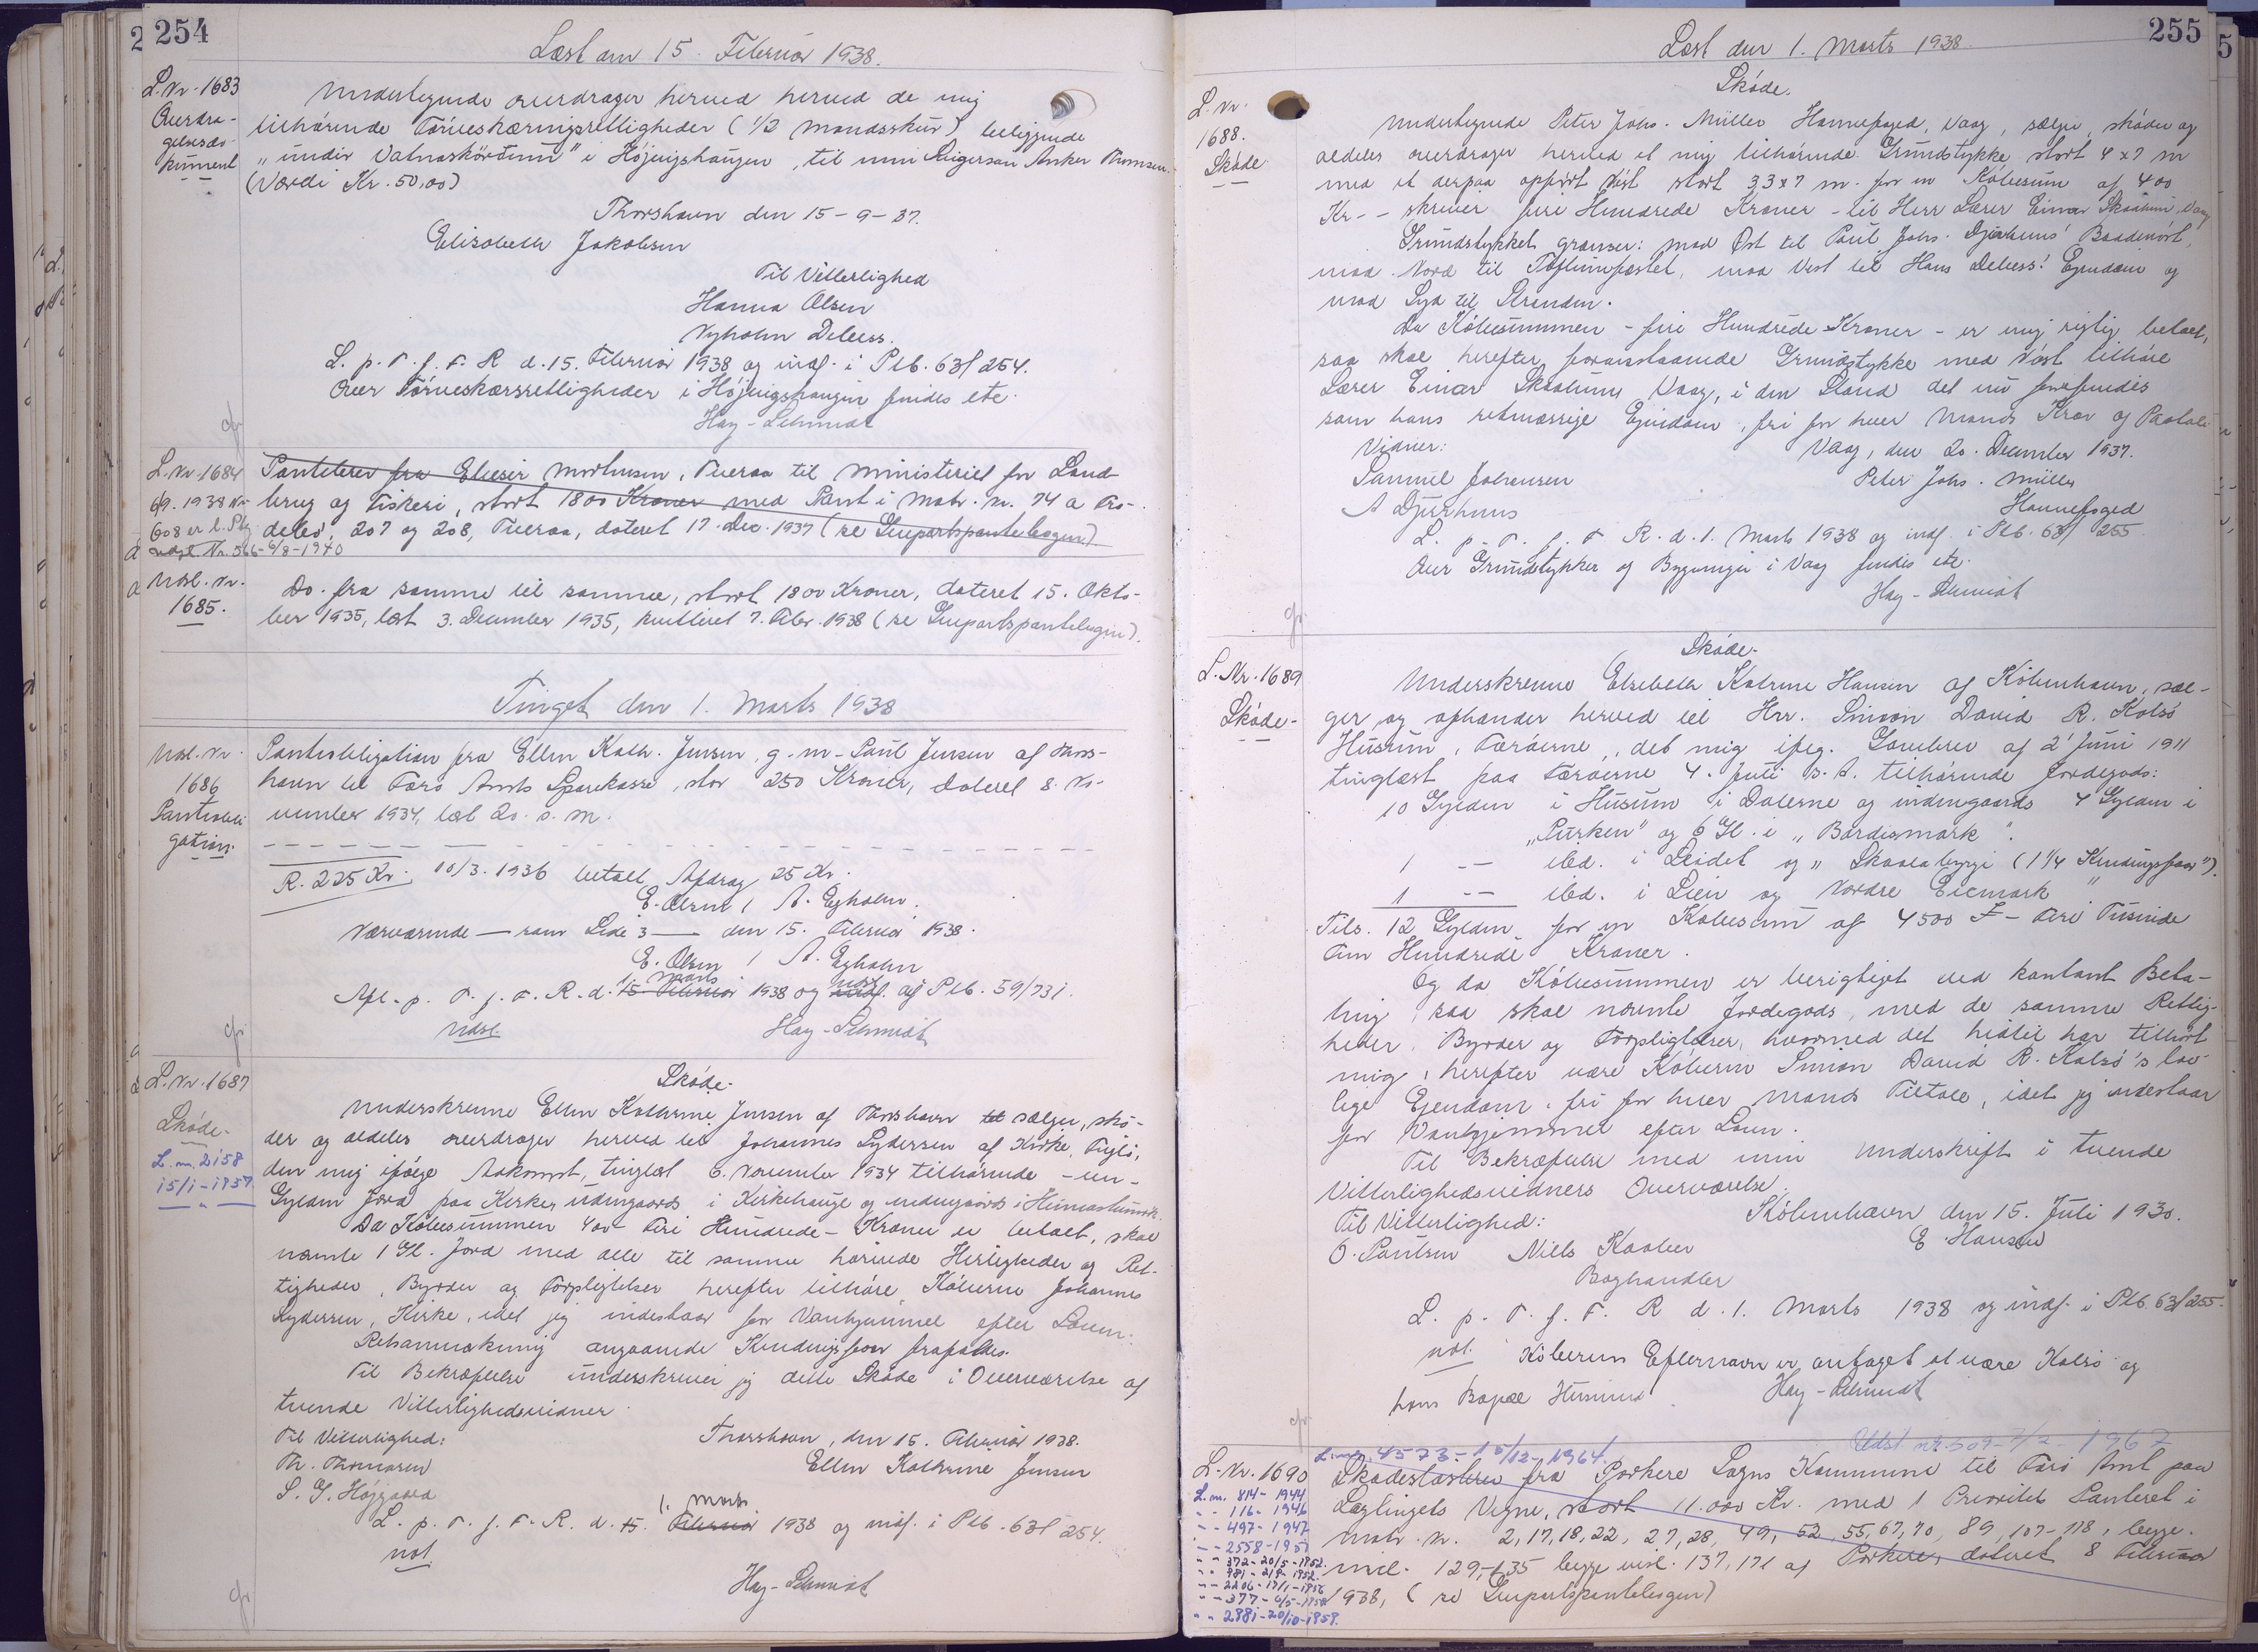 254
Læst den 15. Februar 1938.
L. Nr. 1683
Overdra-
gelsesdo-
kument
Undertegnede overdrager herved herved de mig
tilhørende Tørveskæringsrettigheder (1/2 Mandsskur) beliggende
"undir Vatnaskørðum" i Højvigshaugen, til min Plejesøn Anker Thomsen.
(Værdi Kr. 50,00)
Thorshavn den 15-9-37.
Elisabeth Jakobsen
Til Vitterlighed
Hanna Olsen
Nyholm Debess.
L. p. T. f. F. R d. 15. Februar 1938 og indf. i Ptb. 63/254.
Over Tørveskærsrettigheder i Højvigshaugen findes ete.
Hay-Schmidt
L. Nr. 1684
6/9. 1938 Nr.
608 er l. Ptg.
udsl. Nr. 566-6/8-1940
Pantebrev fra Elieser Mortensen, Tveraa til Ministeriet for Land-
brug og Fiskeri, stort 1800 Kroner med Pant i Matr. Nr. 74 a Fro-
debø, 207 og 208, Tveraa, dateret 17. Dec. 1937 (se Genpartspantebogen)
Udsl. Nr.
1685.
Do. fra samme til samme, stort 1800 Kroner, dateret 15. Okto-
ber 1935, læst 3. December 1935, kvitteret 7. Febr. 1938 (se Genpartspantebogen).
Tinget den 1. Marts 1938
Udsl. Nr.
1686
Pantobli
gation.
Pantobligation fra Ellen Kath. Jensen, g. m. Paul Jensen af Thors-
havn til Færø Amts Sparekasse, stor 250 Kroner, dateret 8. No-
vember 1934, læst 20. s. M.
R. 225 Kr. 10/3. 1936 betalt Afdrag 25 Kr.
E. Olsen / A. Egholm.
Nærværende — som Side 3 — den 15. Februar 1938.
E. Olsen / A. Egholm
Afl. p. T. f. F. R. d. 15. Februar 1. Marts 1938 og indf. udsl. af Ptb. 59/731.
Udsl.
Hay-Schmidt
L. Nr. 1687
Skøde-
L. nr. 2158
15/1-1957
Skøde.
Underskrevne Ellen Kathrine Jensen af Thorshavn til sælger, skø-
der og aldeles overdrager herved til Johannes Lydersen af Kirke, Fuglø,
den mig ifølge Adkomst, tinglæst 6. November 1934 tilhørende - en -
Gylden Jord paa Kirke, udengaards i Kirkehauge og indengaards i
Da Købesummen 400 Fire Hundrede - Kroner er betalt, skal
nævnte 1 Gl. Jord med alle til samme hørende Herligheder og Ret-
tigheder, Byrder og Forpligtelser herefter tilhøre Køberen Johannes
Lydersen, Kirke, idet jeg indestaar for Vanhjemmel efter Loven.
Retsanmærkning angaaende Kendingsfaar frafaldes.
Til Bekræftelse underskriver jeg dette Skøde i Overværelse af
tvende Vitterlighedsvidner
Til Vitterlighed:
Thorshavn, den 15. Februar 1938.
Th. Thomasen
Ellen Kathrine Jensen
S. G. Højgaard
L. p. T. f. F. R. d. 15. Februar 1. Marts 1938 og indf. i Ptb. 63/254.
not.
Hay-Schmidt
255
Læst den 1. Marts 1938.
L. Nr.
1688.
Skøde
Skøde.
Undertegnede Peter Johs. Müller Havnefoged, Vaag, sælger, skøder og
aldeles overdrager herved et mig tilhørende Grundstykke, stort 4 x 7 m
med et derpaa opført Nøst stort 3,3 x 7 m. for en Købesum af 400
Kr. - skriver fire Hundrede Kroner - til Herr Lærer Einar Skaalum, Vaag
Grundstykket grænser: mod Øst til Poul Johs. Djurhuus' Baadenøst,
mod Nord til Toftumfæstet, mod Vest til Hans Debess' Ejendom og
mod Syd til Stranden.
Da Købesummen - fire Hundrede Kroner - er mig rigtig betalt,
saa skal herefter foranstaaende Grundstykke med Nøst tilhøre
Lærer Einar Skaalum, Vaag, i den Stand det nu forefindes
som hans retmæssige Ejendom, fri for hver Mands Krav og Paatale
Vidner:
Vaag, den 20. December 1937.
Samuel Johansen
Peter Johs. Müller
A Djurhuus
Havnefoged
L. p. T. f. F R. d. 1. Marts 1938 og indf. i Ptb. 63/255.
Over Grundstykker og Bygninger i Vaag findes ete.
Hay-Schmidt
L. Nr. 1689
Skøde-
Skøde-
Underskrevne Elsebeth Katrine Hansen af København, sæl-
ger og afhænder herved til Hr. Simon David R. Kalsø
Husum, Færøerne, det mig ifølg. Gavebrev af 2' Juni 1911
tinglæst paa Færøerne 4. Juli s. A. tilhørende Jordegods:
10 Gylden i Husum i Dalerne og indengaards 4 Gylden i
"Purken" og 6 Gl. i "Bardismørk".
1 — ibd. i Leidet og "Skaalabyrgi (1 1/4 Kendingsfaar").
1 — ibd. i Lien og Nordre Eiemark "
Tils. 12 Gylden for en Købesum af 4500 Fire Tusinde
Fem Hundrede Kroner.
Og da Købesummen er berigtiget ved kontant Beta-
ling, saa skal nævnte Jordegods, med de samme Rettig-
heder, Byrder og Forpligtelser, hvormed det hidtil har tilhørt
mig, herefter være Køberen Simon David R. Kalsø's lov-
lige Ejendom, fri for hver Mands Tiltale, idet jeg indestaar
for Vanhjemmel efter Loven.
Til Bekræftelse med min Underskrift i tvende
Vitterlighedsvidners Overværelse.
Til Vitterlighed:
København den 15. Juli 1930.
O. Paulsen Niels Kaaber
E. Hansen
Boghandler
L. p. T. f. F. R d. 1. Marts 1938 og indf. i Ptb. 63/255.
not. Køberens Efternavn er antaget at være Kalsø og
hans Bopæl Husum
Hay-Schmidt
L. nr. 4573-15/12-1964. Udsl. nr. 509-7/2-1967
L. Nr. 1690
L. nr. 814-1944
" - 116-1946
" - 497-1947
" - 2558-1951
" " 372-20/5-1952.
" " 981-21/9-1952.
" - 2206-17/1-1956
" - 377-4/5-1958
" " 2981-20/10-1959.
Skadesløsbrev fra Porkere Sogns Kommune til Færø Amt paa
Lagtingets Vegne, stort 11.000 Kr. med 1 Prioritets Panteret i
Matr. Nr. 2, 17, 18, 22, 27, 28, 49, 52, 55, 67, 70, 89, 107-118, begge
incl. 129-135 begge incl. 137, 171 af Porkere, dateret 8 Februar
1938, (se Genpartspantebogen)